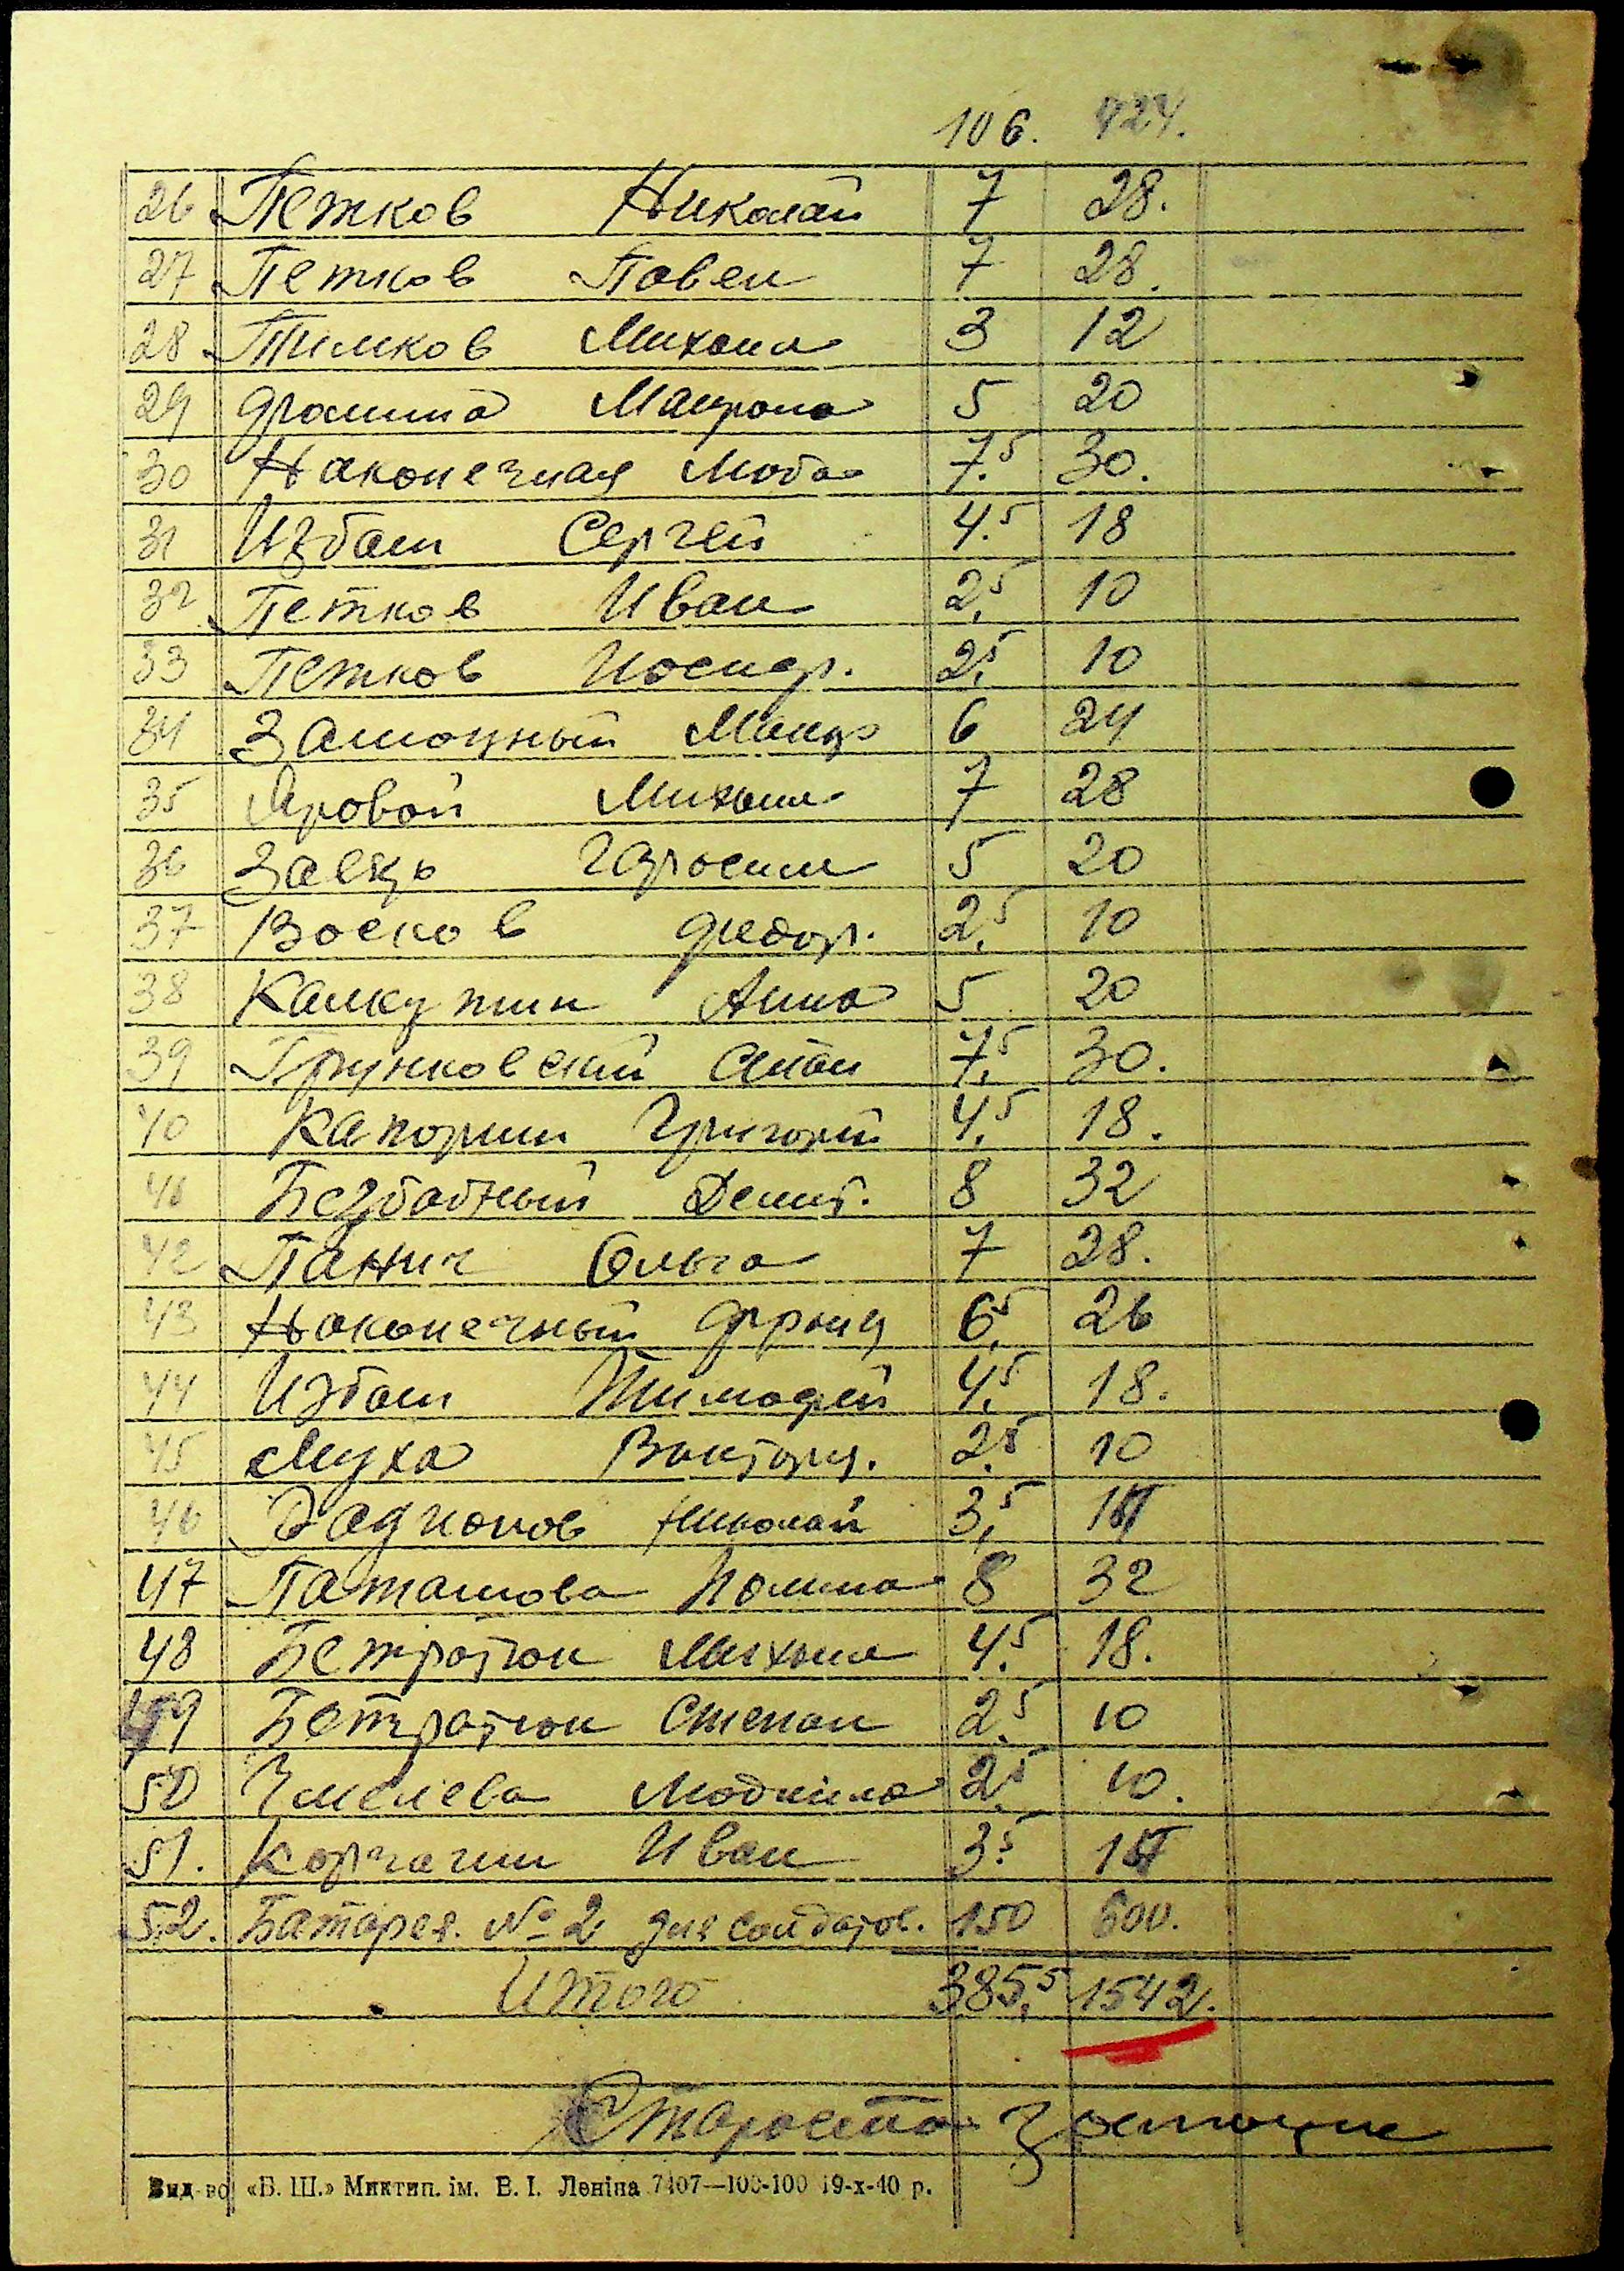 106. 424.
26 Петков Николай 7 28.
27 Петков Павел 7 28.
28 Тимков Михаил 3 12
29 5 20
30 Наконечная Люба 7.5 30.
31 Избаш Сергей 4.5 18
32 Петков Иван 2.5 10
33 Петков 2.5 10
34 6 24
35 Яровой Михаил 7 28
36 Заець Гаросим 5 20
37 Восков Федор. 2.5 10
38 Калкутин Анна 5 20
39 7.5 30.
40 Капорин Григорий 4.5 18.
41 Безбатный 8 32
42 Панич Ольга 7 28.
43 Наконечный Франц 6.5 26
44 Избаш Тимофей 4.5 18.
45 Муха 2.5 10
46 Николай 3,5 14
47 Паташова 8 32
48 Михаил 4.5 18.
49 Степан 2.5 10
50 Людмила 2.5 10.
51. Корчагин Иван 3.5 14
52. Батарея. № 2 для солдатов. 150 600.
Итого 385,5 1542.
Староста
Вид-во «В. Ш.» Миктип. ім. В. І. Леніна 7407—100-100 19-х-40 р.